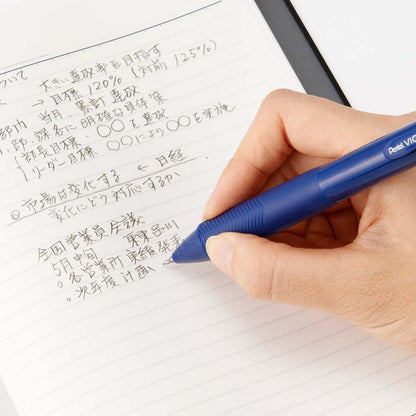 について
大きい直取率を目指す
→ 目標 120% (対前 125%)
当月、累計直取
部内
部、課各に明確な具体策
部長目標、○○を直取
リーダー目標、○○により ○○を実施
◎市場は変化する ← 月経
変化にどう対応するか
全国営業員会議
東京品川
5月中旬
○各営業所 実績発表
○次年度計画
Pentel VIC